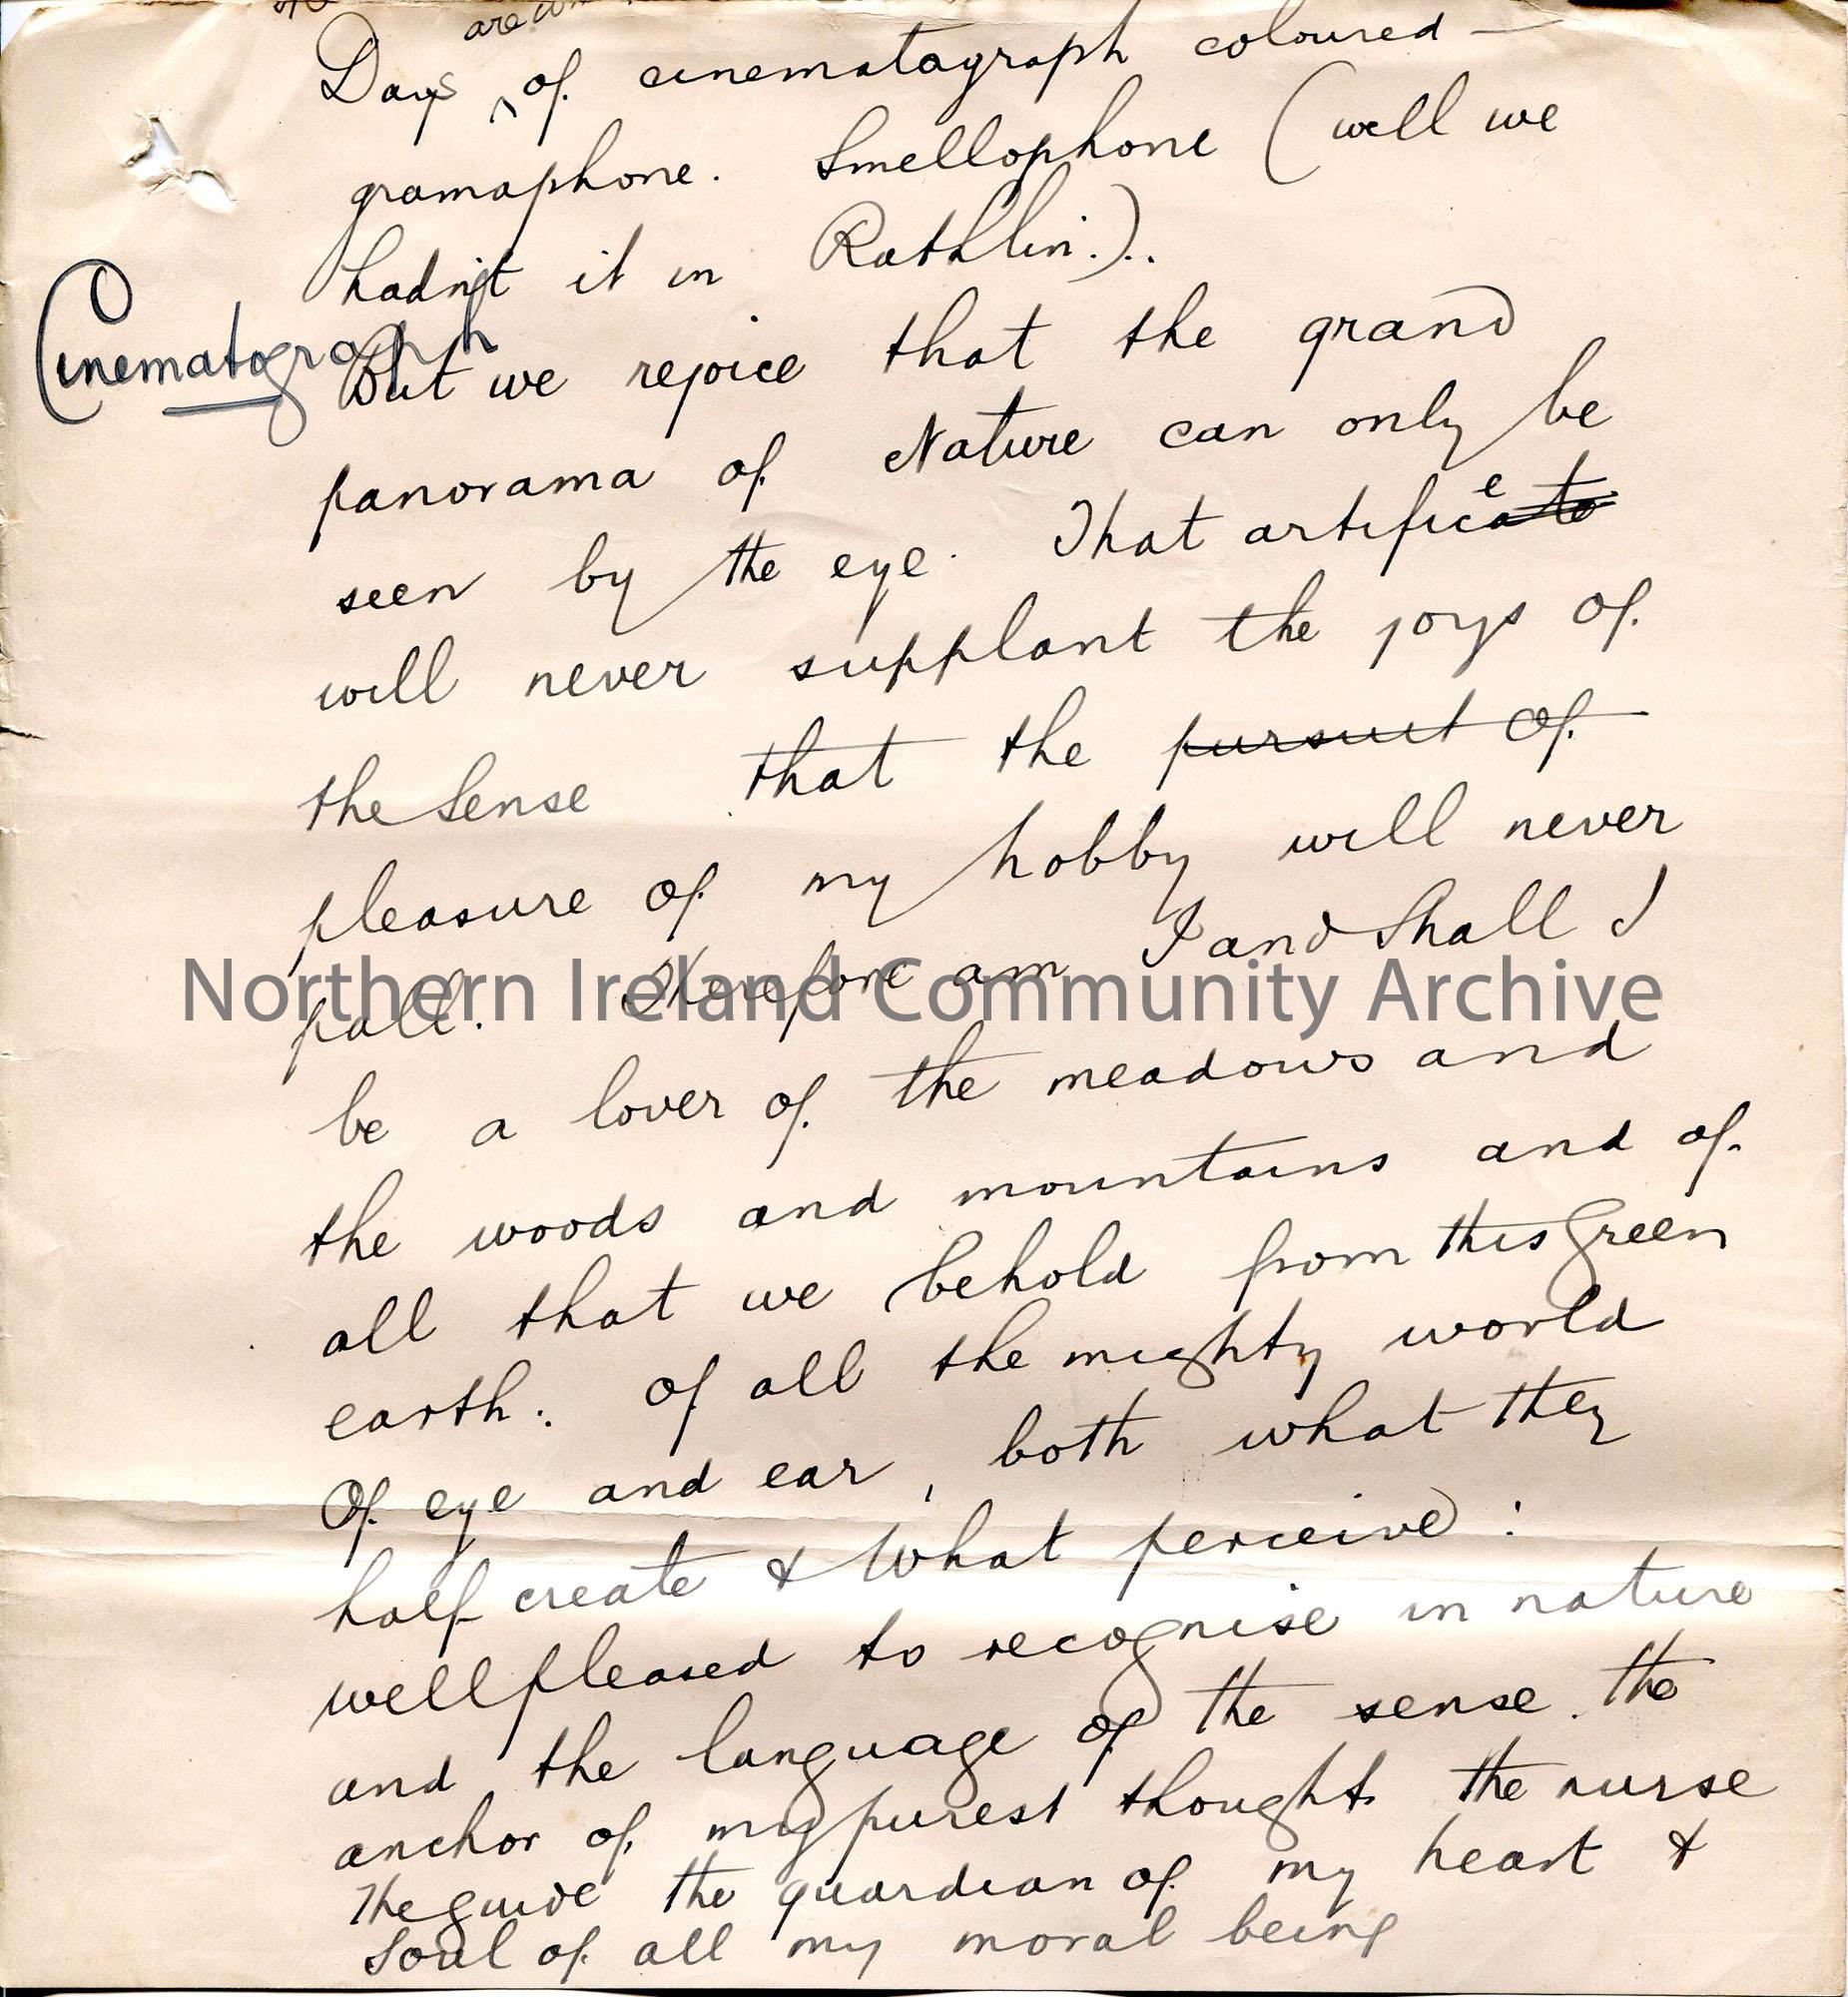 are
Days of cinematagraph coloured —
gramaphone. Smellophone (well we
hadn't it in Rathlin.)..
Cinematograph
But we rejoice that the grand
panorama of Nature can only be
seen by the eye. That artifice
will never supplant the joys of
the Sense that the pursuit of
pleasure of my hobby will never
pall. Therefore am I and Shall I
be a lover of the meadows and
the woods and mountains and of
all that we behold from this Green
earth: of all the mighty world
Of eye and ear, both what they
half create & What perceive:
well pleased to recognise in nature
and the language of the sense. the
anchor of my purest thoughts the nurse
The guide the guardian of my heart &
Soul of all my moral being
Northern Ireland Community Archive